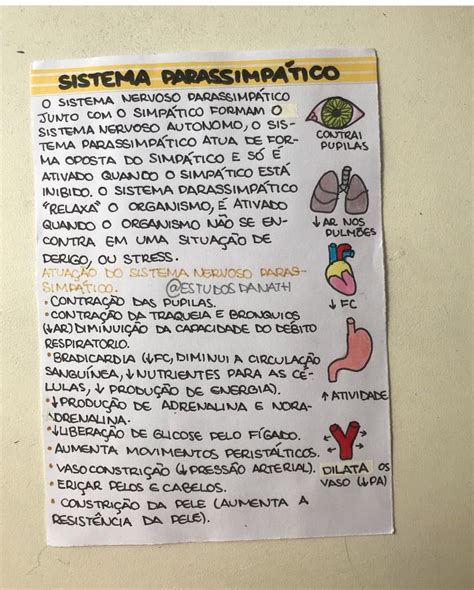 SISTEMA PARASSIMPÁTICO
O SISTEMA NERVOSO PARASSIMPÁTICO
JUNTO COM O SIMPÁTICO FORMAM O
SISTEMA NERVOSO AUTONOMO, O SIS-
TEMA PARASSIMPÁTICO ATUA DE FOR-
MA OPOSTA DO SIMPÁTICO E SÓ É
ATIVADO QUANDO O SIMPÁTICO ESTÁ
INIBIDO. O SISTEMA PARASSIMPÁTICO
"RELAXA" O ORGANISMO, É ATIVADO
QUANDO O ORGANISMO NÃO SE EN-
CONTRA EM UMA SITUAÇÃO DE
PERIGO, OU STRESS.
ATUAÇÃO DO SISTEMA NERVOSO PARAS-
SIMPÁTICO.
@ESTUDOSDANATH
• CONTRAÇÃO DAS PUPILAS.
• CONTRAÇÃO DA TRAQUEIA E BRONQUIOS
(↓AR) DIMINUIÇÃO DA CAPACIDADE DO DÉBITO
RESPIRATORIO.
• BRADICARDIA (↓FC, DIMINUI A CIRCULAÇÃO
SANGUÍNEA, ↓NUTRIENTES PARA AS CÉ-
LULAS, ↓ PRODUÇÃO DE ENERGIA).
• ↓PRODUÇÃO DE ADRENALINA E NORA-
DRENALINA.
• ↓LIBERAÇÃO DE GLICOSE PELO FÍGADO.
• AUMENTA MOVIMENTOS PERISTÁLTICOS.
• VASOCONSTRIÇÃO (↓PRESSÃO ARTERIAL).
• ERIÇAR PELOS E CABELOS.
• CONSTRIÇÃO DA PELE (AUMENTA A
RESISTÊNCIA DA PELE).
CONTRAI
PUPILAS
↓AR NOS
PULMÕES
↓FC
↑ATIVIDADE
DILATA OS
VASO (↓PA)